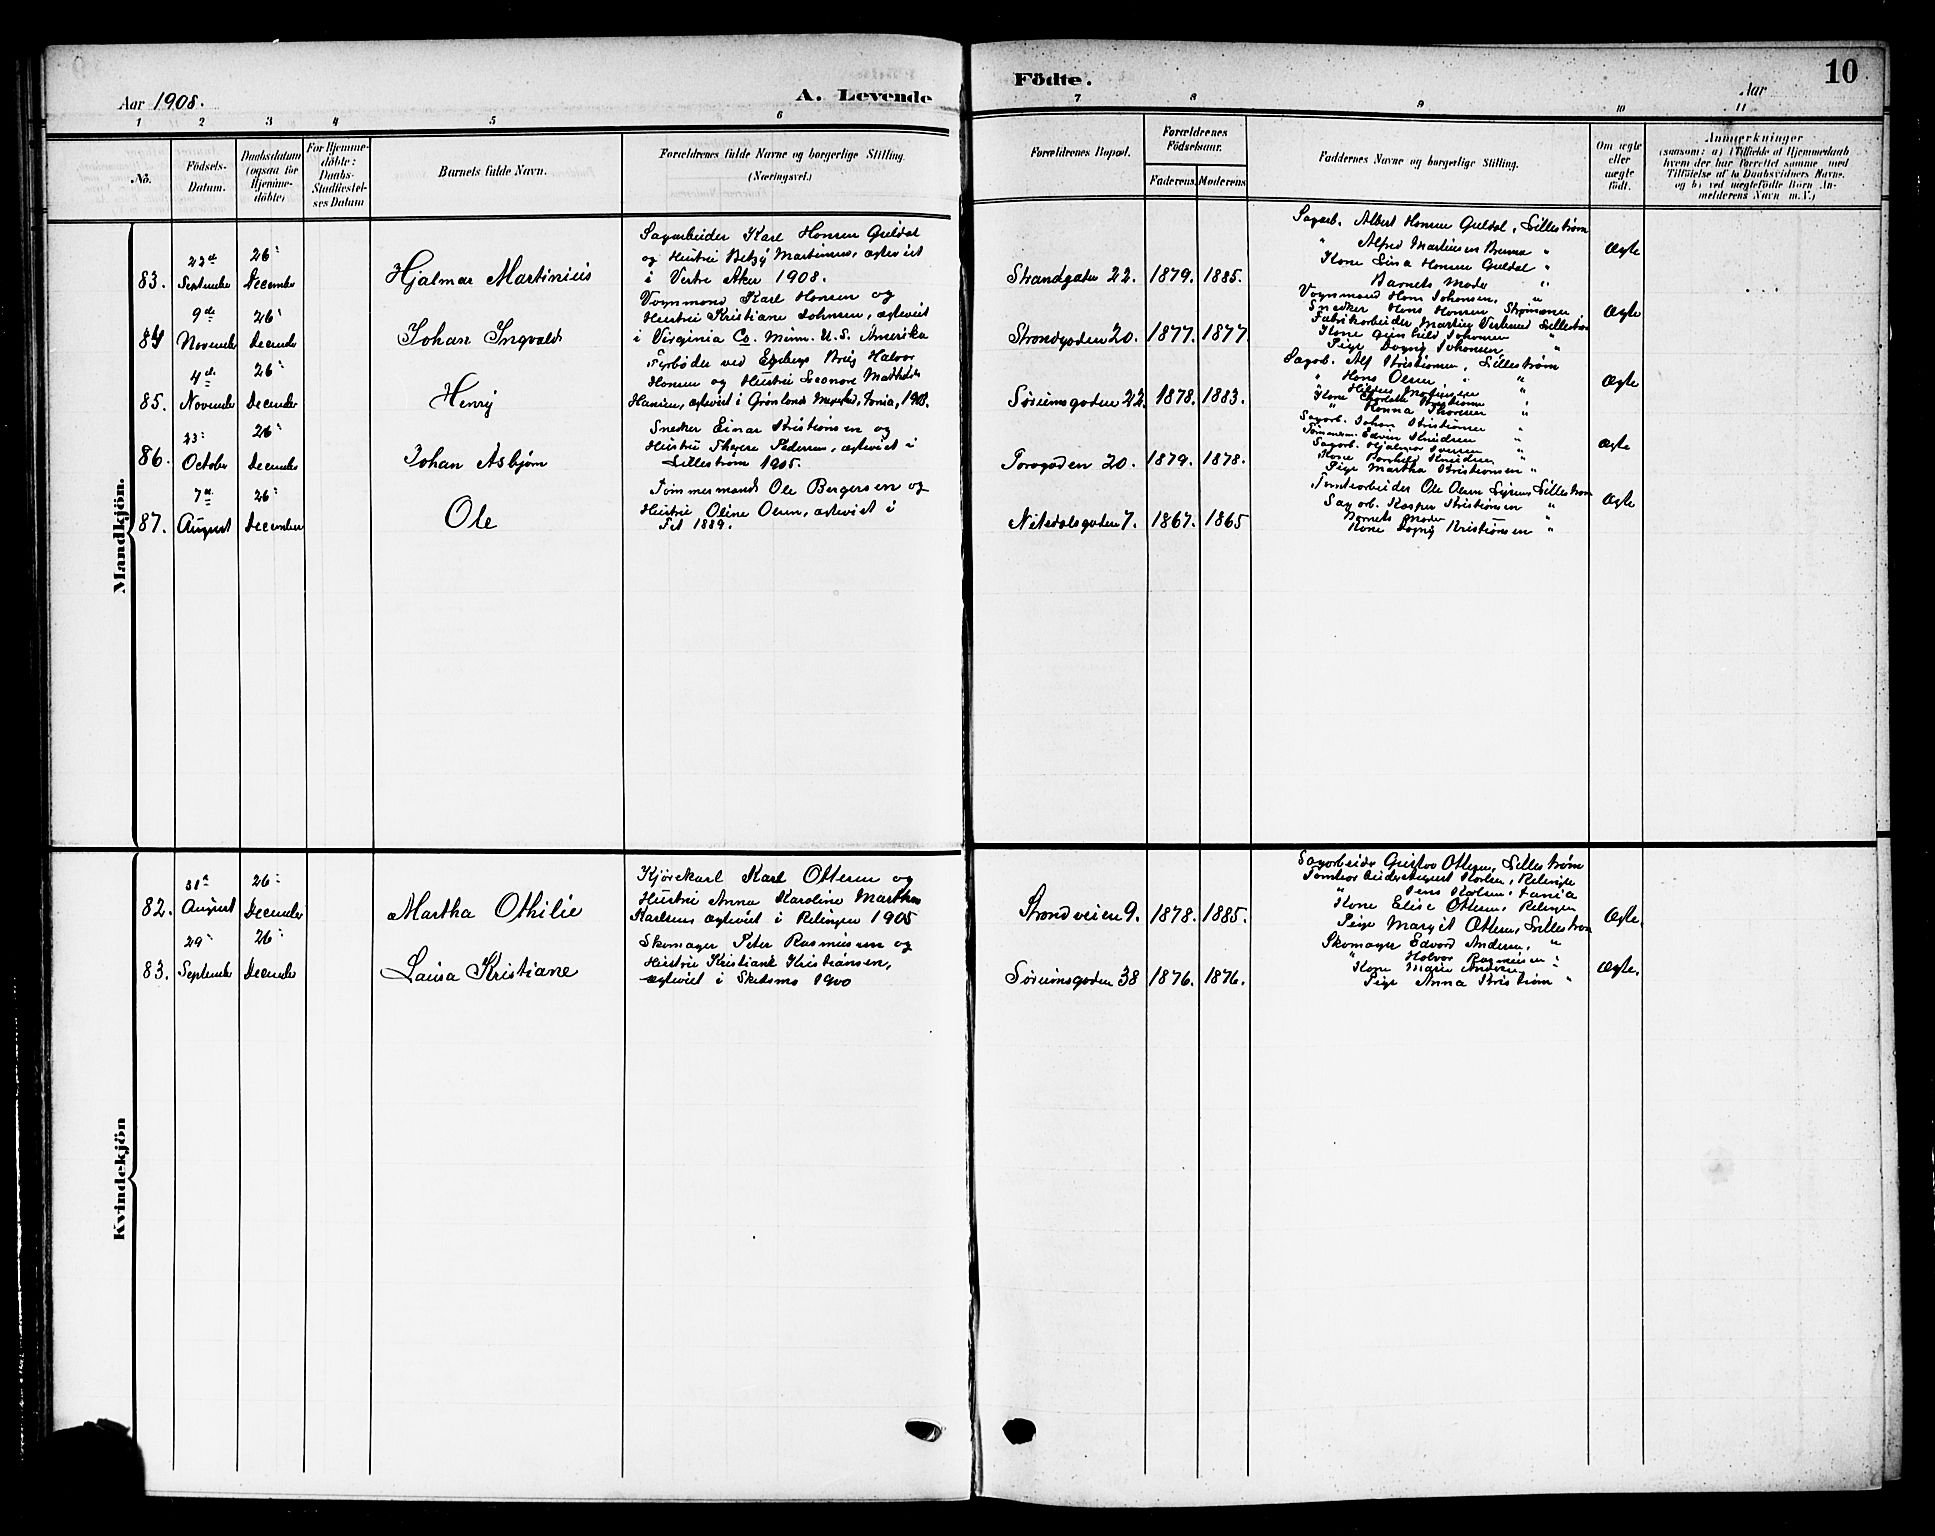 Aar 1908.
A. Levende
Födte.
10
Aar
1 2 3 4 5 6 7 8 9 10 11
No.
Födsels-
Datum.
Daabsdatum
(ogsaa for
Hjemme-
döbte)
For Hjemme-
döbte:
Daabs-
Stadfæstel-
ses Datum
Barnets fulde Navn.
Forældrenes fulde Navne og borgerlige Stilling.
(Næringsvei.)
Forældrenes Bopæl.
Forældrenes
Födselsaar.
Faderens
Moderens
Faddernes Navne og borgerlige Stilling.
Om ægte
eller
uægte
födt.
Anmærkninger
(saasom: a) i Tilfælde af Hjemmedaab
hvem der har forrettet samme med
Tilföielse af to Daabsvidners Navne.
og b) ved uægtefödte Börn An-
melderens Navn m.V.)
Mandkjön.
83.
22de
September
26:
December
Hjalmar Martinius
Sagarbeider Karl Hansen Guldal
og Hustru Betzy Martinsen, egteviet
i Vestre Aker 1908.
Strandgaten 22.
1879.
1885.
Sagarb. Albert Hansen Guldal, Lillestrøm
" Alfred Martinsen "
Kone Lina Hansen Guldal "
Barnets Moder "
Ægte
84
9de
November
26:
December
Johan Ingvald
Vognmand Karl Hansen og
Hustru Kristiane Johnsen, egteviet
i Virginia Co. Minn. U.S. Amerika
Strandgaden 20.
1877.
1877.
Vognmand Hans Johansen, "
Snedker Hans Hansen, Strømmen
Fabrikarbeider Martin Lillestrøm
Kone Gunhild Johansen "
Pige Dagny Johansen, "
Ægte
85.
4de
November
26:
December
Henry
Fyrbøder ved Brug Halvor
Hansen og Hustru Leonore Mathilde
Hansen, egteviet i Grønlands Menighed, 1903.
Sørumsgaden 22.
1878.
1883.
Sagarb. Alf Kristiansen, Lillestrøm
" Hans Olsen "
Kone Charlotte Kristiansen
" Hanna Thoresen "
Ægte
86.
23:
October
26:
December
Johan Asbjørn
Snedker Einar Kristiansen og
Hustru Pedersen, egteviet i
Lillestrøm 1905.
Torvgaden 20.
1879.
1878.
Sagarb. Johan Kristiansen "
Edvin Knudsen "
Sagarb. Hjalmar Iversen "
Kone Borghild Knudsen "
Pige Martha Kristiansen "
Ægte
87.
7de
August
26:
December
Ole
Tømmermand Ole Bergersen og
Hustru Oline Olsen, egteviet i
Fet 1889.
Nitedalsgaden 7.
1867.
1865
Tomtearbeider Ole Olsen Lillestrøm
Sagarb. Kasper Kristiansen "
Barnets Moder "
Kone Dagny Kristiansen "
Ægte
Kvindekjön
82.
31te
August
26:
December
Martha Othilie
Kjørekarl Karl Ottersen og
Hustru Anna Karoline Marthea
Karlsen egteviet i Rælingen 1905
Strandveien 9.
1878.
1885.
Sagarbeider Gustav Ottersen, Lillestrøm
Tomtearbeider August Karlsen, Rælingen
" Jens Karlsen,
Kone Elise Ottersen, Rælingen
Pige Margit Ottersen, Lillestrøm
Ægte.
83.
29:
September
26:
December
Laura Kristiane
Skomager Peter Rasmussen og
Hustru Kristiane Kristiansen,
egteviet i Skedsmo 1900
Sørumsgaden 38
1876.
1876.
Skomager Edvard Andersen, "
" Halvor Rasmussen "
Kone Marie Andersen "
Pige Anna Kristiansen "
Ægte.